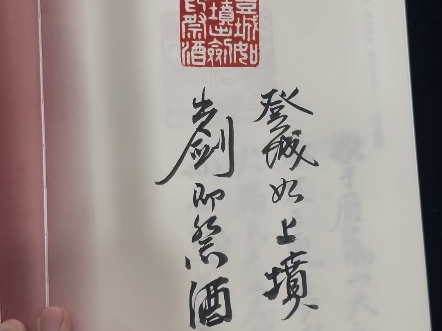 登城如上墳
出劍即祭酒
登城如
墳出劍
即祭酒